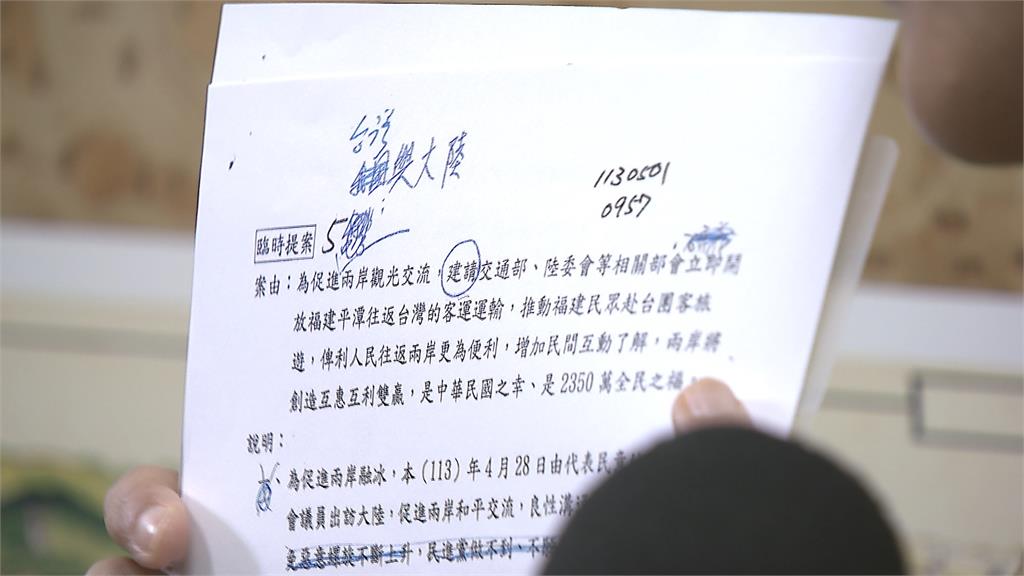 台灣
與大陸
1130501
0957
臨時提案 5
案由：為促進兩岸觀光交流，建請交通部、陸委會等相關部會立即開
放福建平潭往返台灣的客運運輸，推動福建民眾赴台團客旅
遊，俾利人民往返兩岸更為便利，增加民間互動了解，兩岸將
創造互惠互利雙贏，是中華民國之幸、是2350萬全民之福。
說明：
一、為促進兩岸融冰，本(113)年4月28日由代表民意
會議員出訪大陸，促進兩岸和平交流，良性溝通
惡意螺旋不斷上升，民進黨做不到、不